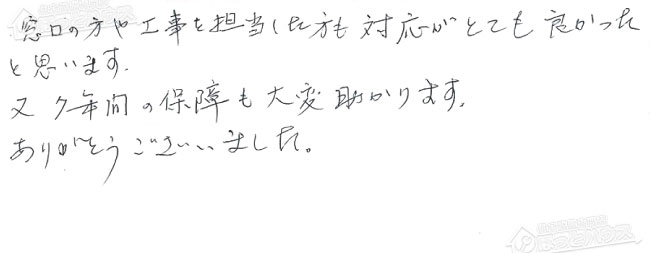 窓口の方や工事を担当した方も対応がとても良かった
と思います.
又 ク年間の保障も大変助かります.
ありがとうございました。